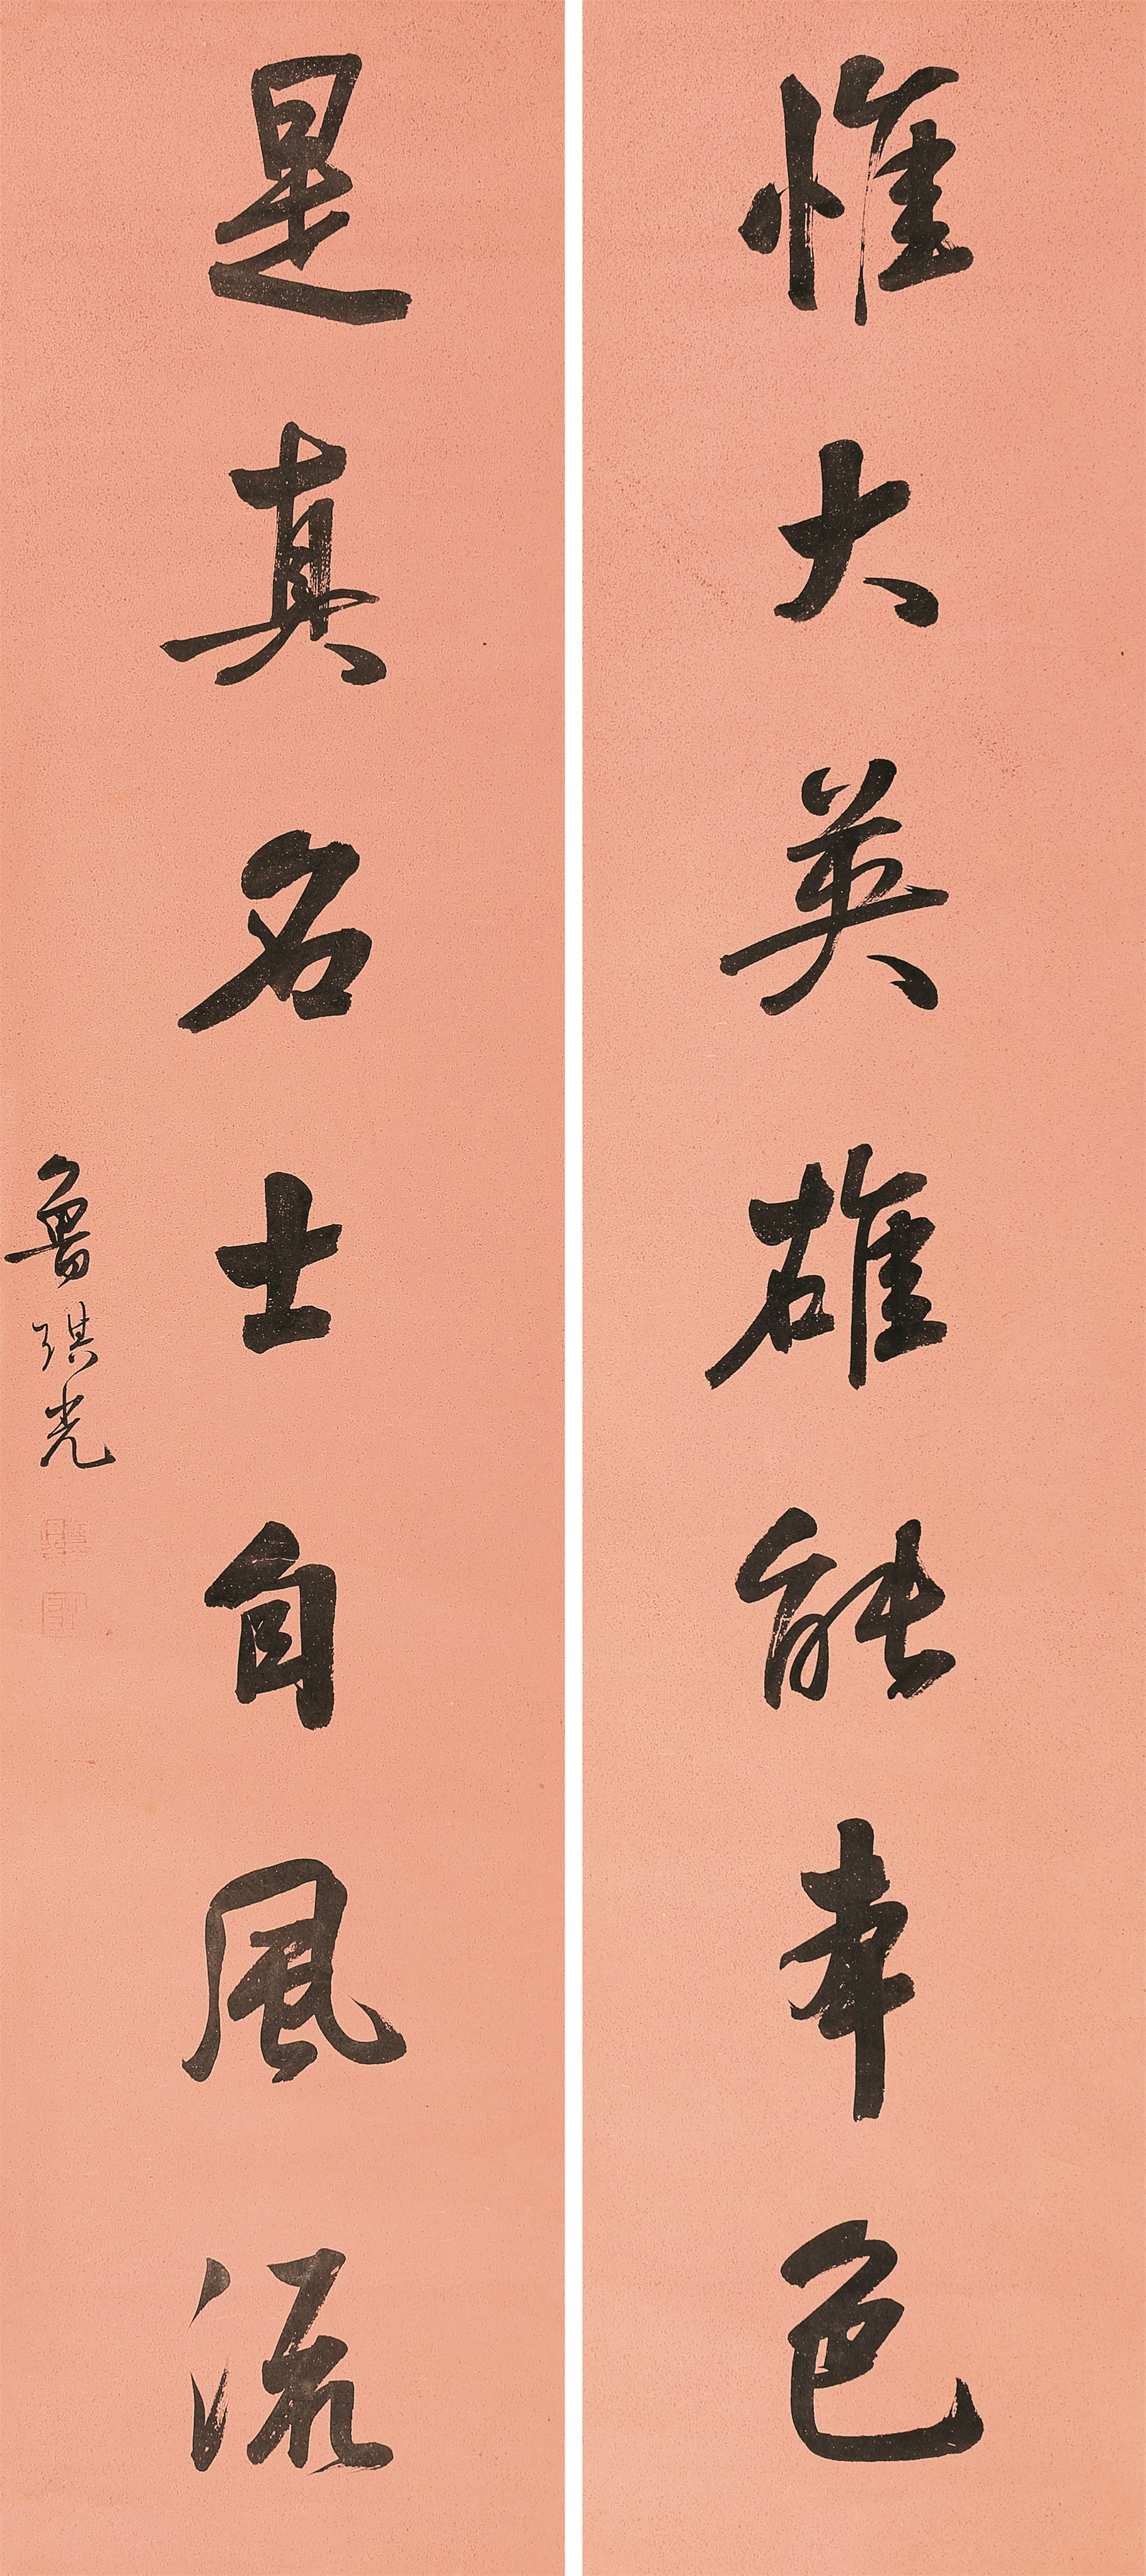 惟大英雄能本色
是真名士自風流
魯琪光